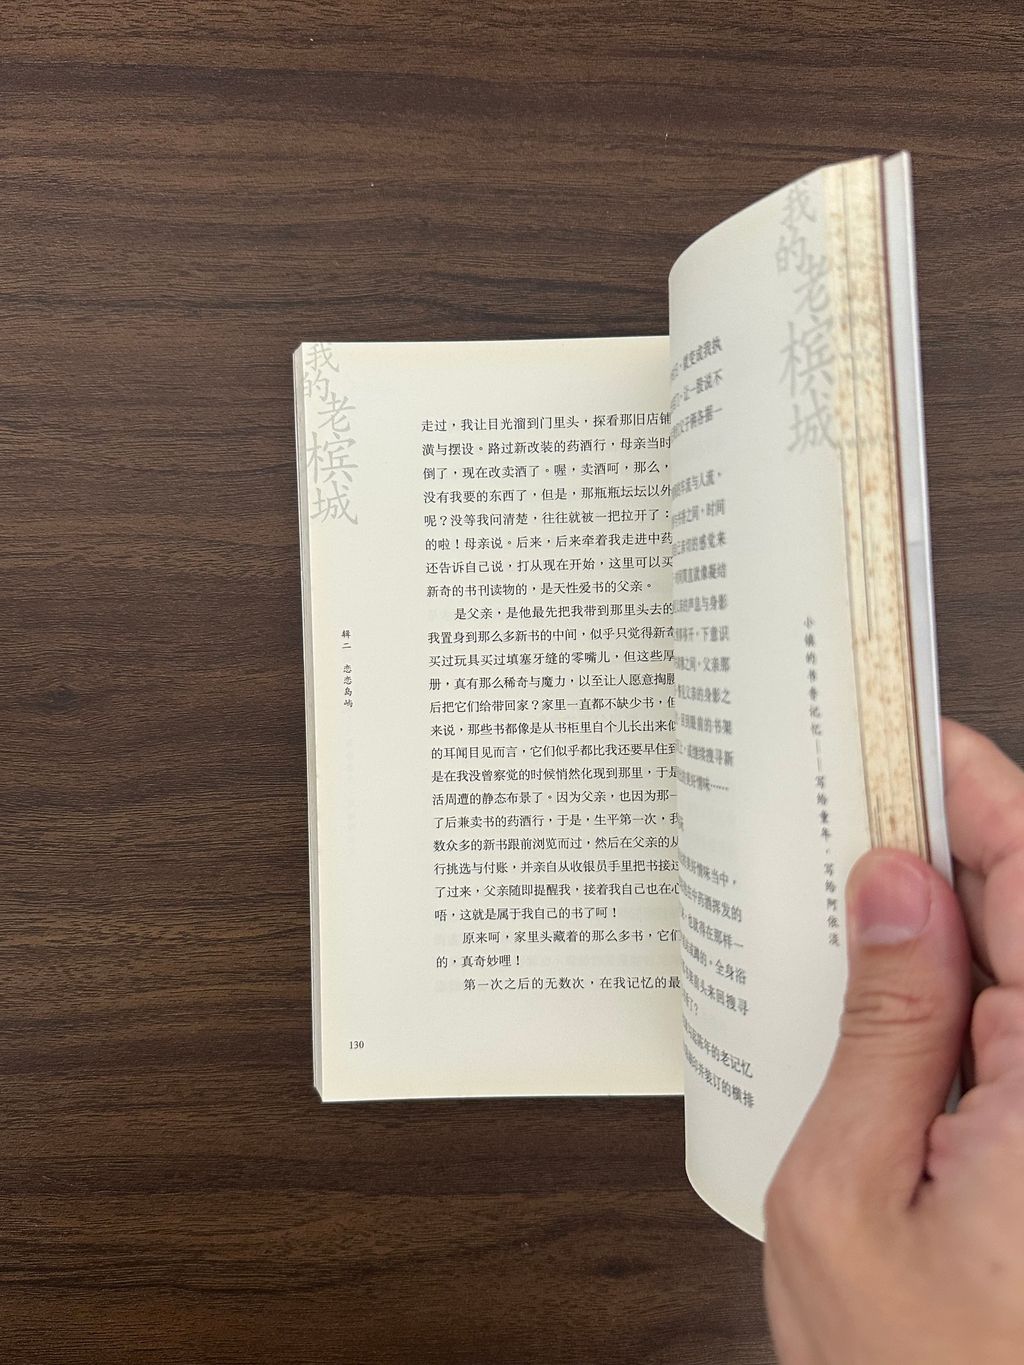 我的老槟城
走过，我让目光溜到门里头，探看那旧店铺
潢与摆设。路过新改装的药酒行，母亲当时
倒了，现在改卖酒了。喔，卖酒呵，那么，
没有我要的东西了，但是，那瓶瓶坛坛以外
呢？没等我问清楚，往往就被一把拉开了：
的啦！母亲说。后来，后来牵着我走进中药
还告诉自己说，打从现在开始，这里可以买
新奇的书刊读物的，是天性爱书的父亲。
是父亲，是他最先把我带到那里头去的
我置身到那么多新书的中间，似乎只觉得新奇
买过玩具买过填塞牙缝的零嘴儿，但这些厚
册，真有那么稀奇与魔力，以至让人愿意掏腰
后把它们给带回家？家里一直都不缺少书，但
来说，那些书都像是从书柜里自个儿长出来似
的耳闻目见而言，它们似乎都比我还要早住到
是在我没曾察觉的时候悄然化现到那里，于是
活周遭的静态布景了。因为父亲，也因为那一
了后兼卖书的药酒行，于是，生平第一次，我
数众多的新书跟前浏览而过，然后在父亲的从
行挑选与付账，并亲自从收银员手里把书接过
了过来，父亲随即提醒我，接着我自己也在心
唔，这就是属于我自己的书了呵！
原来呵，家里头藏着的那么多书，它们
的，真奇妙哩！
第一次之后的无数次，在我记忆的最
辑二 恋恋岛屿
130
我的老槟城
变成我执
让一般说不
父子俩各据一
车流与人流，
之间，时间
亲切的感觉来
间简直就像凝结
的声息与身影
开，下意识
之间，父亲那
父亲的身影之
回到眼前的书架
或继续搜寻新
美好情味……
美好情味当中，
在中药酒挥发的
也彼得在那样一
的。全身浴
头来回搜寻
了？
陈年的老记忆
并装订的横排
小镇的书香记忆——写给童年，写给阿依淡